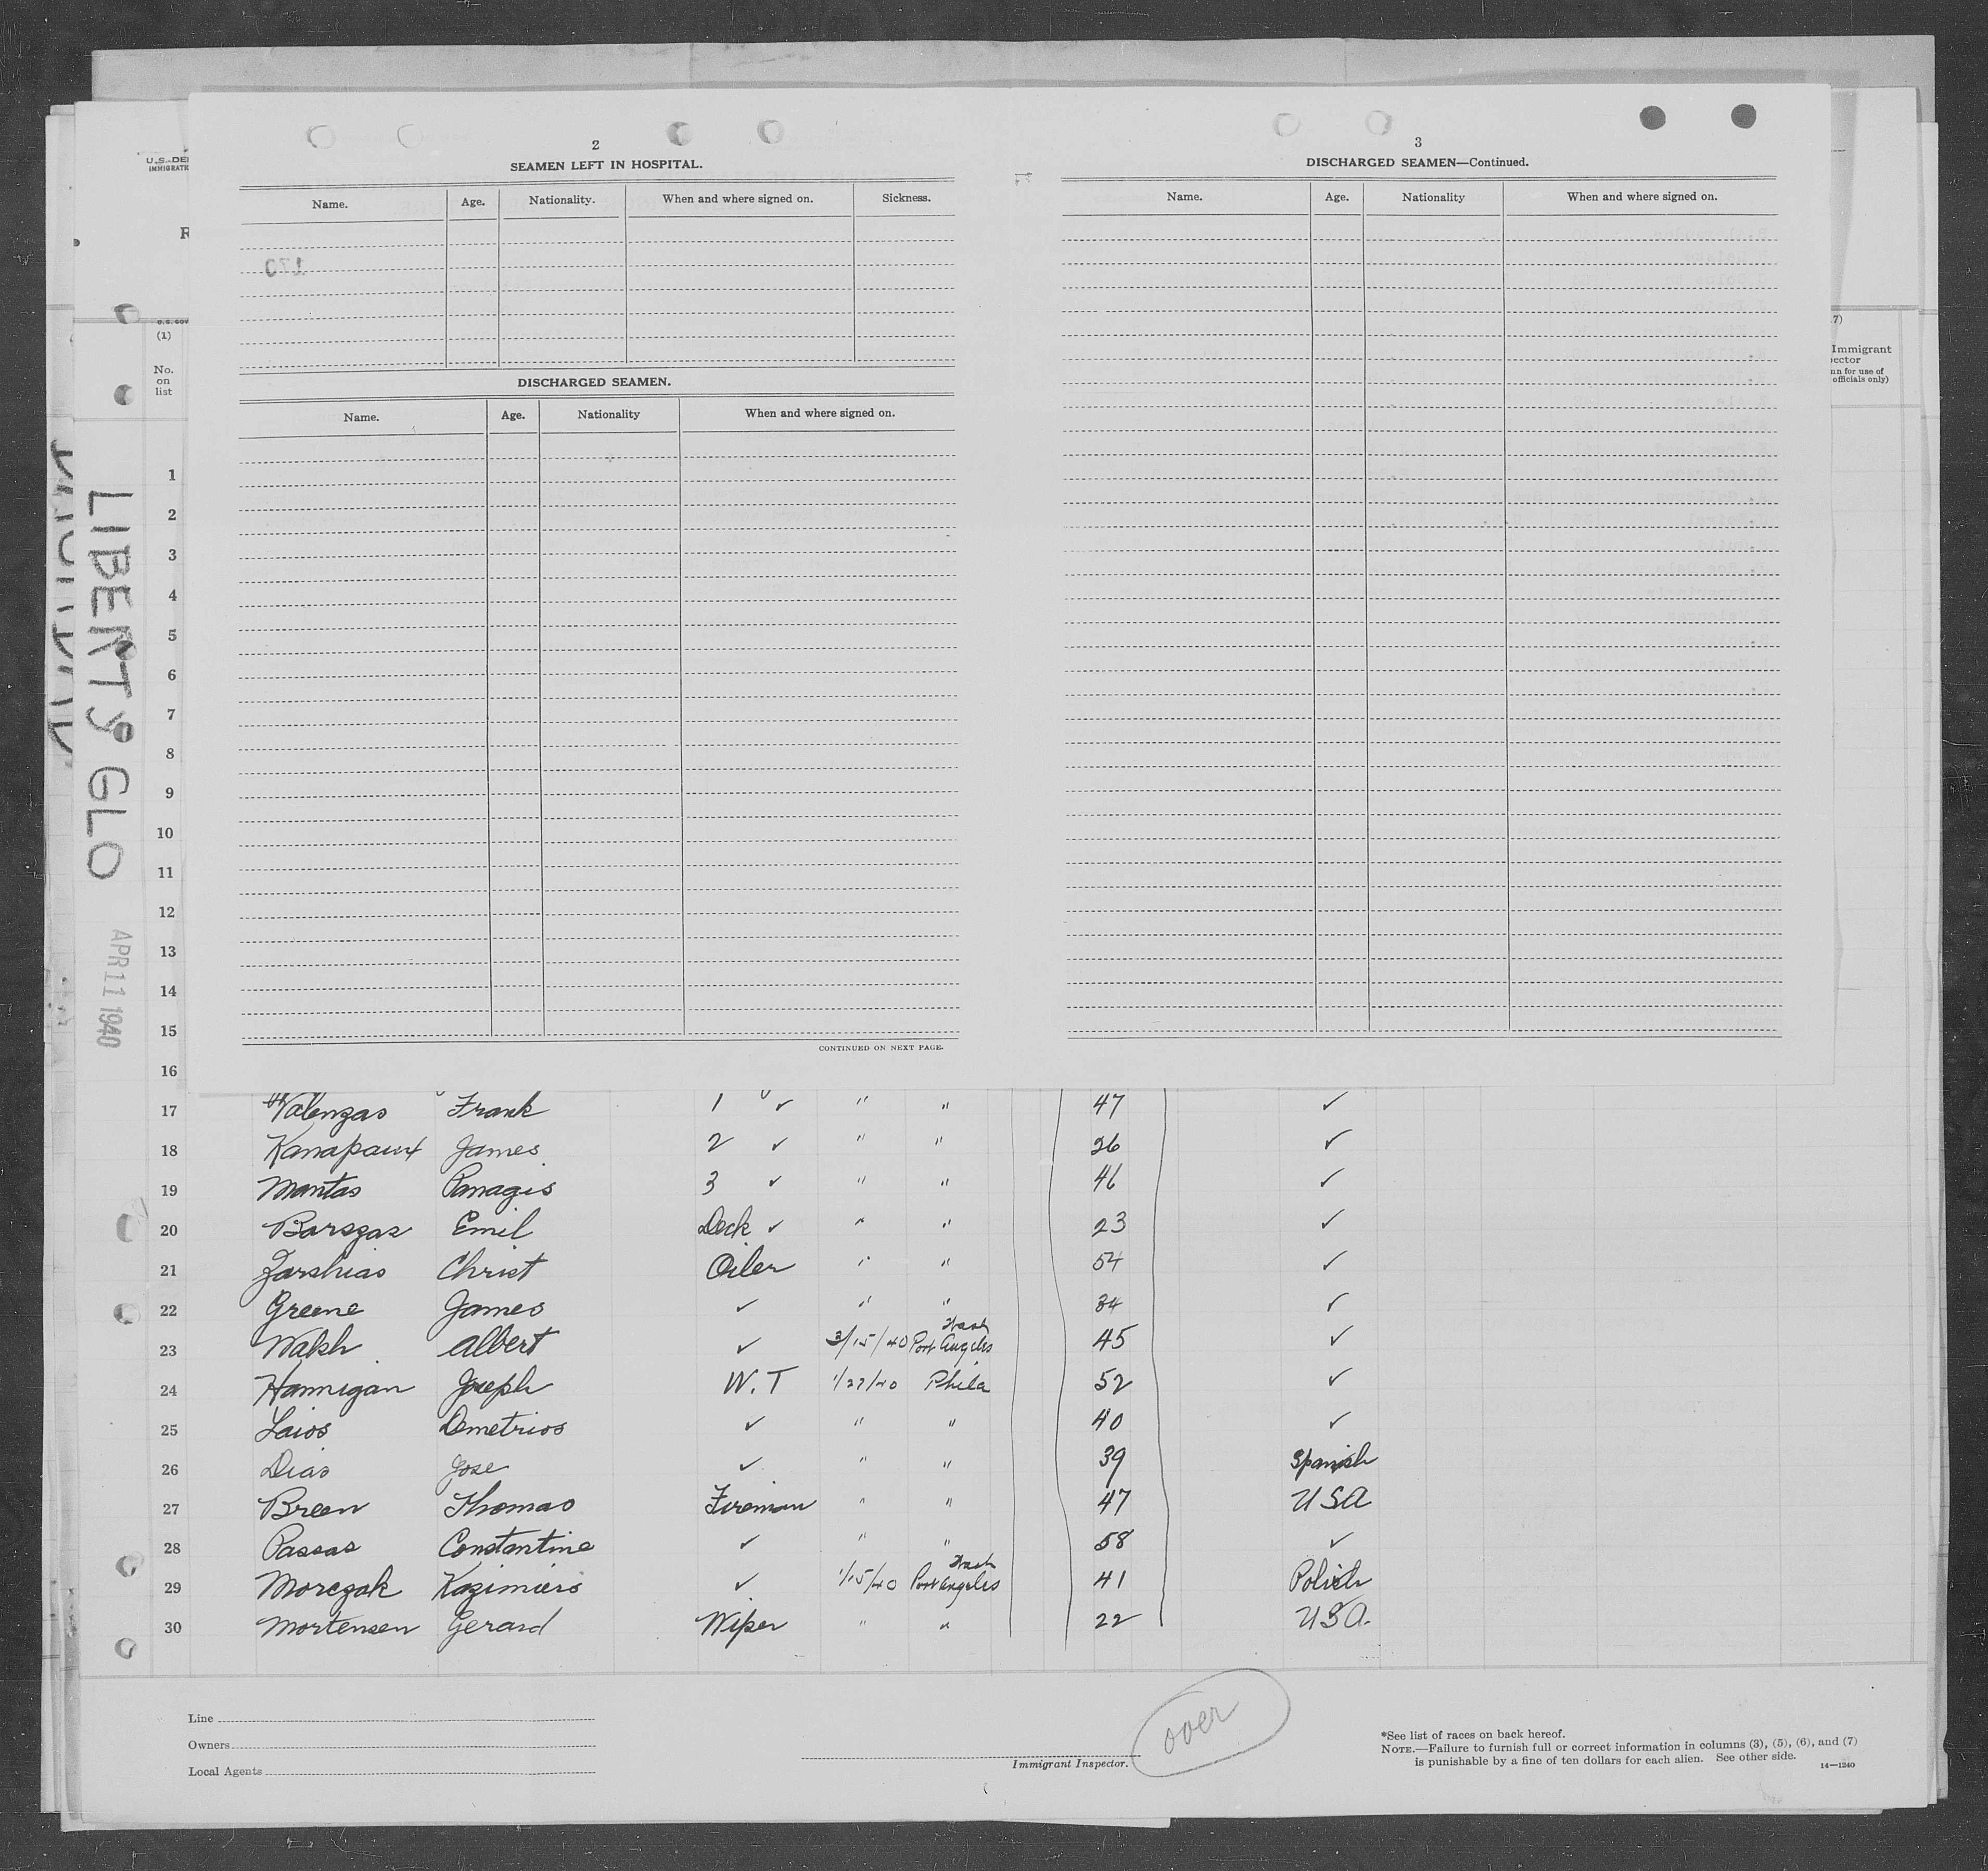 2
SEAMEN LEFT IN HOSPITAL.
Name. Age. Nationality. When and where signed on. Sickness.
DISCHARGED SEAMEN.
Name. Age. Nationality When and where signed on.
CONTINUED ON NEXT PAGE.
3
DISCHARGED SEAMEN—Continued.
Name. Age. Nationality When and where signed on.
U.S. DE
IMMIGRATI
R
U.S. GOV
(1)
No.
on
list
7)
Immigrant
ector
n for use of
officials only)
LIBERTY GLO
APR 11 1940
1
2
3
4
5
6
7
8
9
10
11
12
13
14
15
16
17 Valenzas Frank 1 " ✓ " " 47 ✓
18 Kanapaux James 2 ✓ " " 26 ✓
19 Mantas Panagis 3 ✓ " " 46 ✓
20 Barszas Emil Deck ✓ " " 23 ✓
21 Zarshias Christ Oiler " " 54 ✓
22 Greene James ✓ " " 34 ✓
23 Walsh Albert ✓ 3/15/40 Port Angeles Wash 45 ✓
24 Hannigan Joseph W.T 1/27/40 Phila 52 ✓
25 Laios Demetrios ✓ " " 40 ✓
26 Dias Jose ✓ " " 39 Spanish
27 Breen Thomas Fireman " " 47 USA
28 Passas Constantine ✓ " " 58 ✓
29 Morczak Kazimiers ✓ 1/15/40 Port Angeles Wash 41 Polish
30 Mortensen Gerard Wiper " " 22 USA.
Line
Owners
Local Agents
Immigrant Inspector.
over
*See list of races on back hereof.
NOTE.—Failure to furnish full or correct information in columns (3), (5), (6), and (7)
is punishable by a fine of ten dollars for each alien. See other side.
14—1240